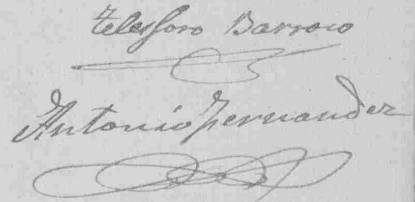 Telesforo Barroso
Antonio Fernandez